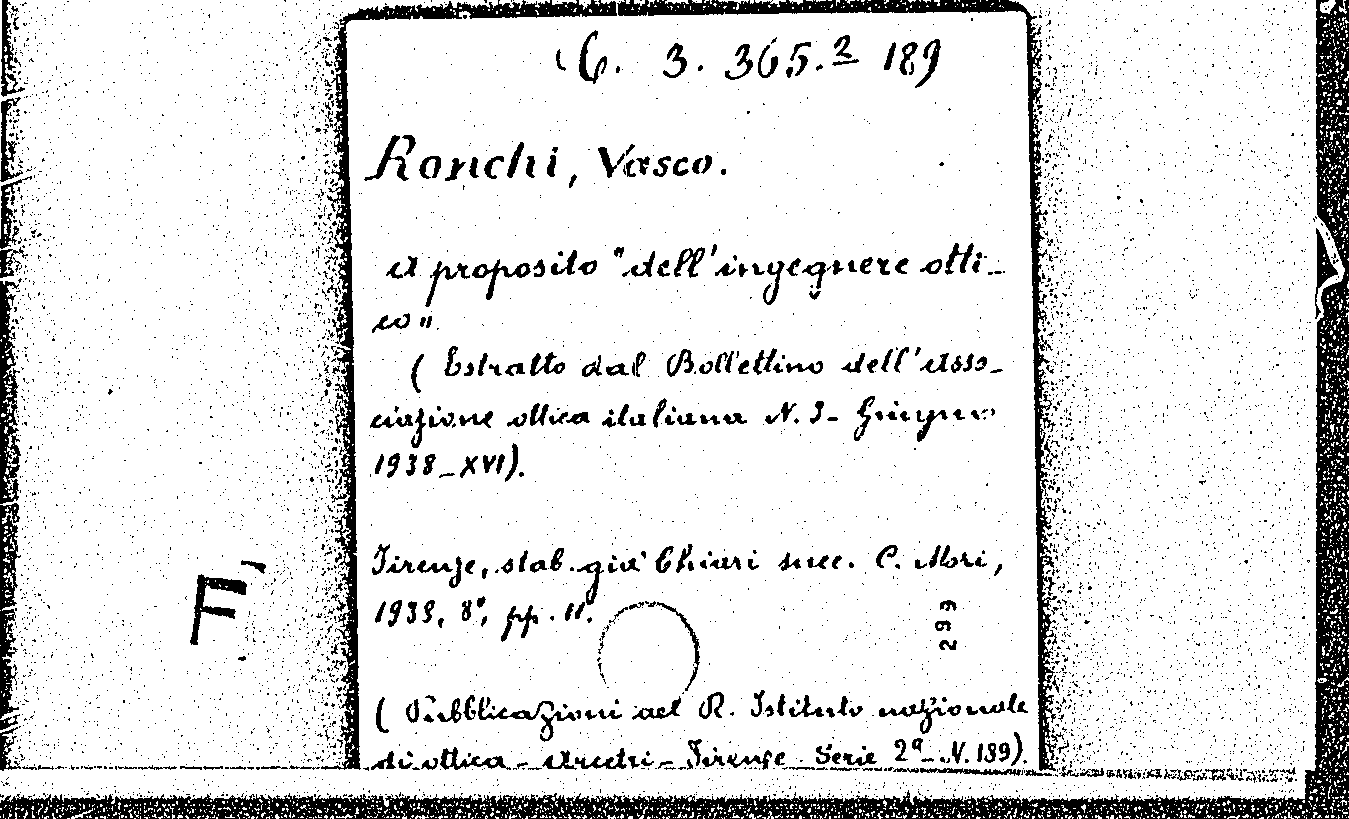 6. 3. 365.2 189
Ronchi, Vasco.
A proposito "dell'ingegnere otti-
co"
( Estratto dal Bollettino dell'Asso-
ciazione ottica italiana N. 3 - Giugno
1938 - XVI).
Firenze, stab. già Chiari succ. C. Mori,
1938, 8°, pp. 11.
299
F
( Pubblicazioni del R. Istituto nazionale
di ottica - Arcetri - Firenze Serie 2ª - N. 189).